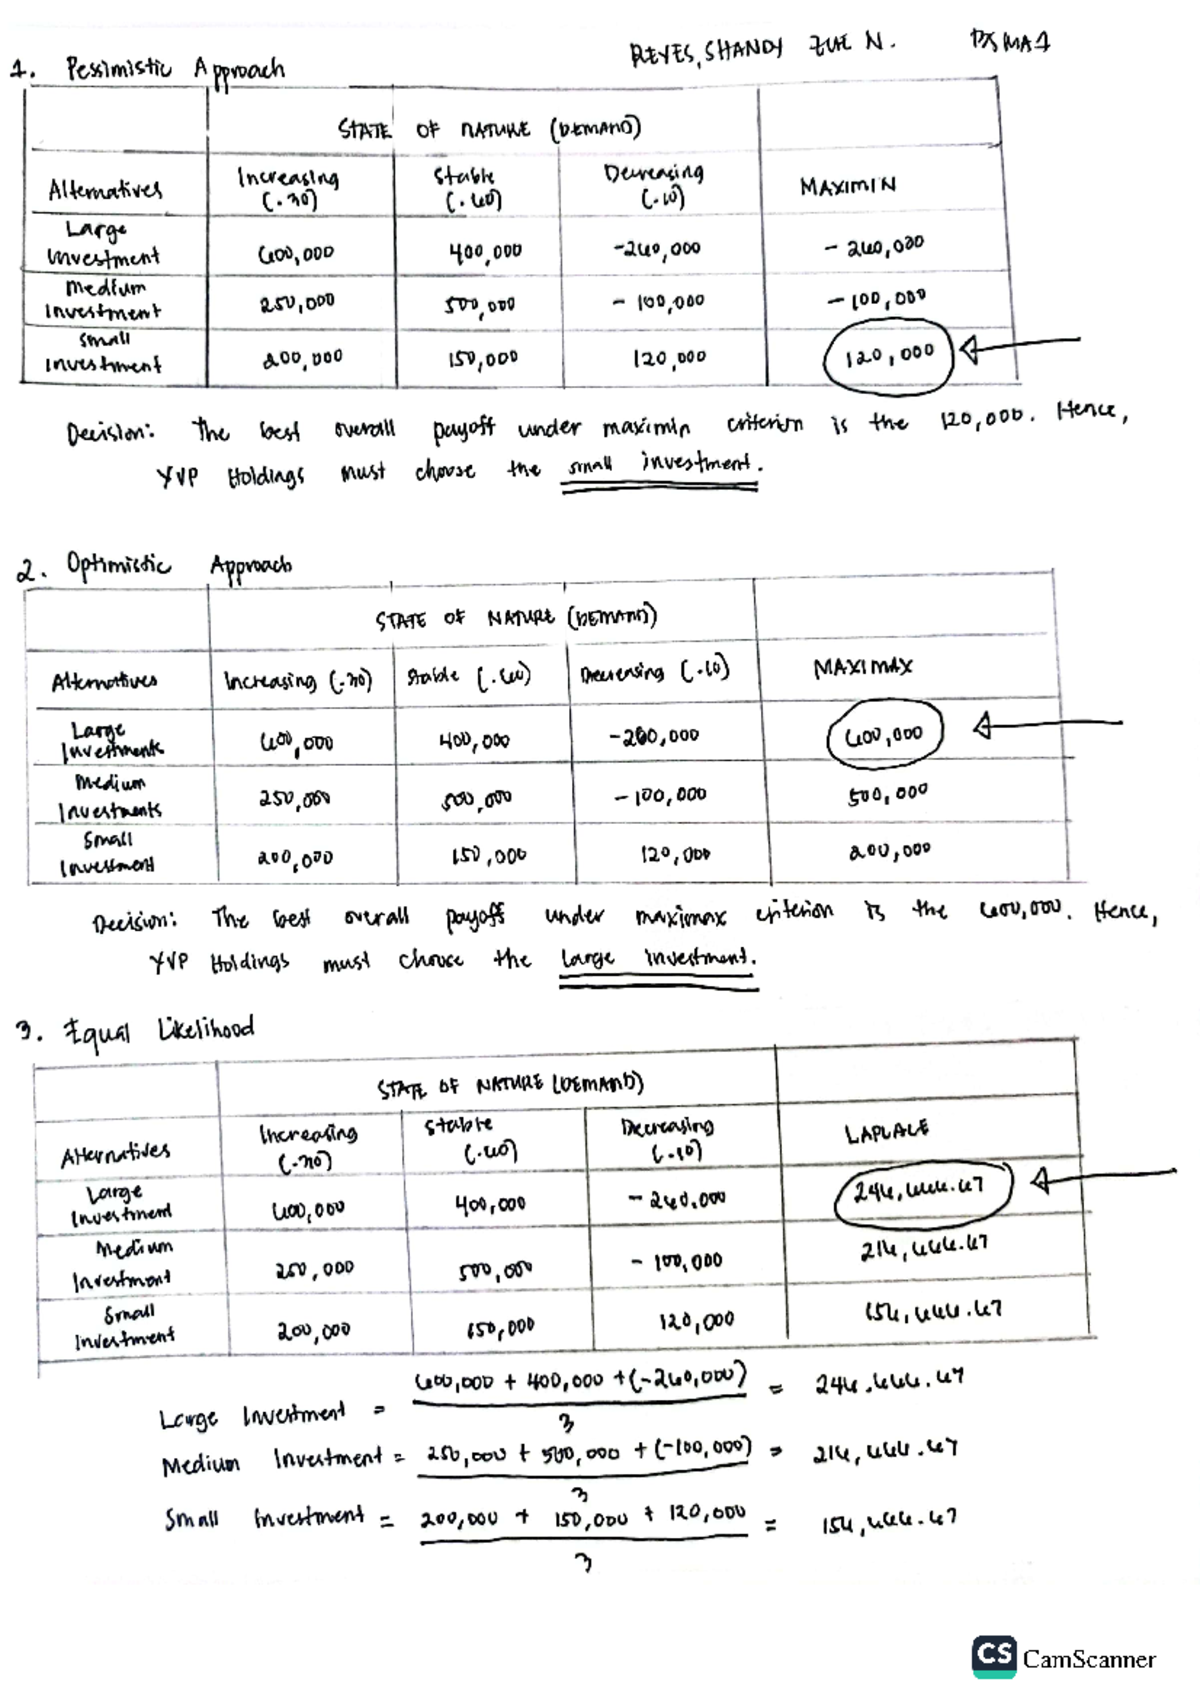 REYES, SHANDY ZUE N. BSMA1
1. Pessimistic Approach
STATE OF NATURE (DEMAND)
Alternatives Increasing (.30) Stable (.60) Decreasing (.10) MAXIMIN
Large Investment 600,000 400,000 -260,000 - 260,000
Medium Investment 250,000 500,000 - 100,000 - 100,000
Small Investment 200,000 150,000 120,000 120,000
Decision: The best overall payoff under maximin criterion is the 120,000. Hence,
YVP Holdings must choose the small investment.
2. Optimistic Approach
STATE OF NATURE (DEMAND)
Alternatives Increasing (.30) Stable (.60) Decreasing (.10) MAXIMAX
Large Investments 600,000 400,000 -260,000 600,000
Medium Investments 250,000 500,000 - 100,000 500,000
Small Investment 200,000 150,000 120,000 200,000
Decision: The best overall payoff under maximax criterion is the 600,000. Hence,
YVP Holdings must choose the large investment.
3. Equal Likelihood
STATE OF NATURE (DEMAND)
Alternatives Increasing (.30) Stable (.60) Decreasing (.10) LAPLACE
Large Investment 600,000 400,000 - 260,000 246,666.67
Medium Investment 250,000 500,000 - 100,000 216,666.67
Small Investment 200,000 150,000 120,000 156,666.67
Large Investment = 600,000 + 400,000 + (-260,000) / 3 = 246,666.67
Medium Investment = 250,000 + 500,000 + (-100,000) / 3 = 216,666.67
Small Investment = 200,000 + 150,000 + 120,000 / 3 = 156,666.67
CS CamScanner